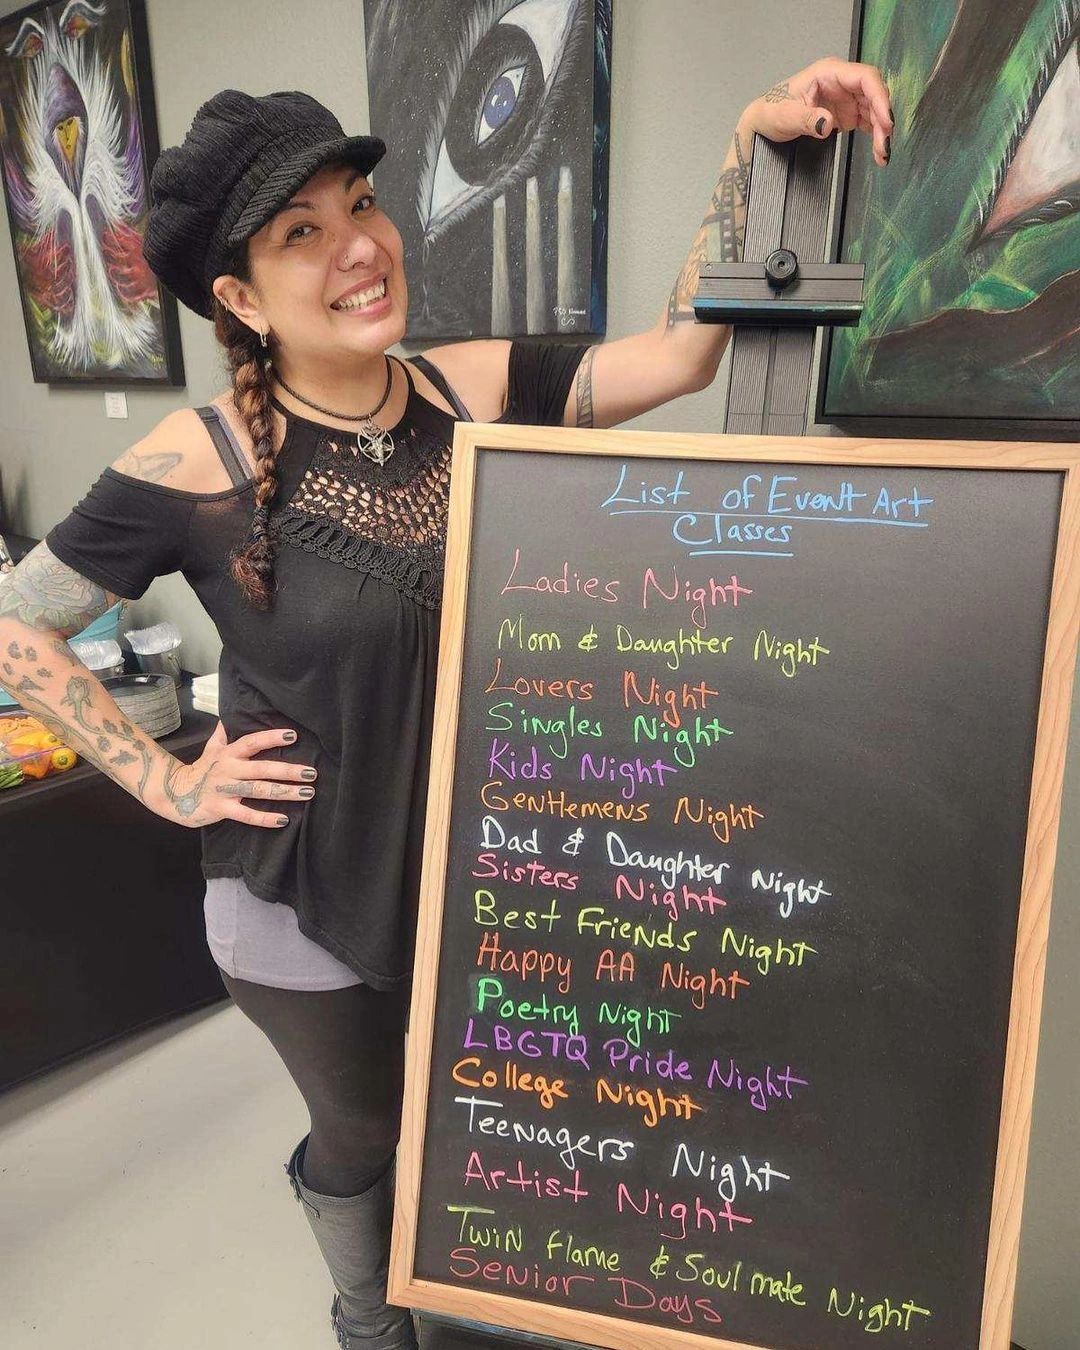 List of Event Art
Classes
Ladies Night
Mom & Daughter Night
Lovers Night
Singles Night
Kids Night
Gentlemens Night
Dad & Daughter Night
Sisters Night
Best Friends Night
Happy AA Night
Poetry Night
LBGTQ Pride Night
College Night
Teenagers Night
Artist Night
Twin flame & Soul mate Night
Senior Days